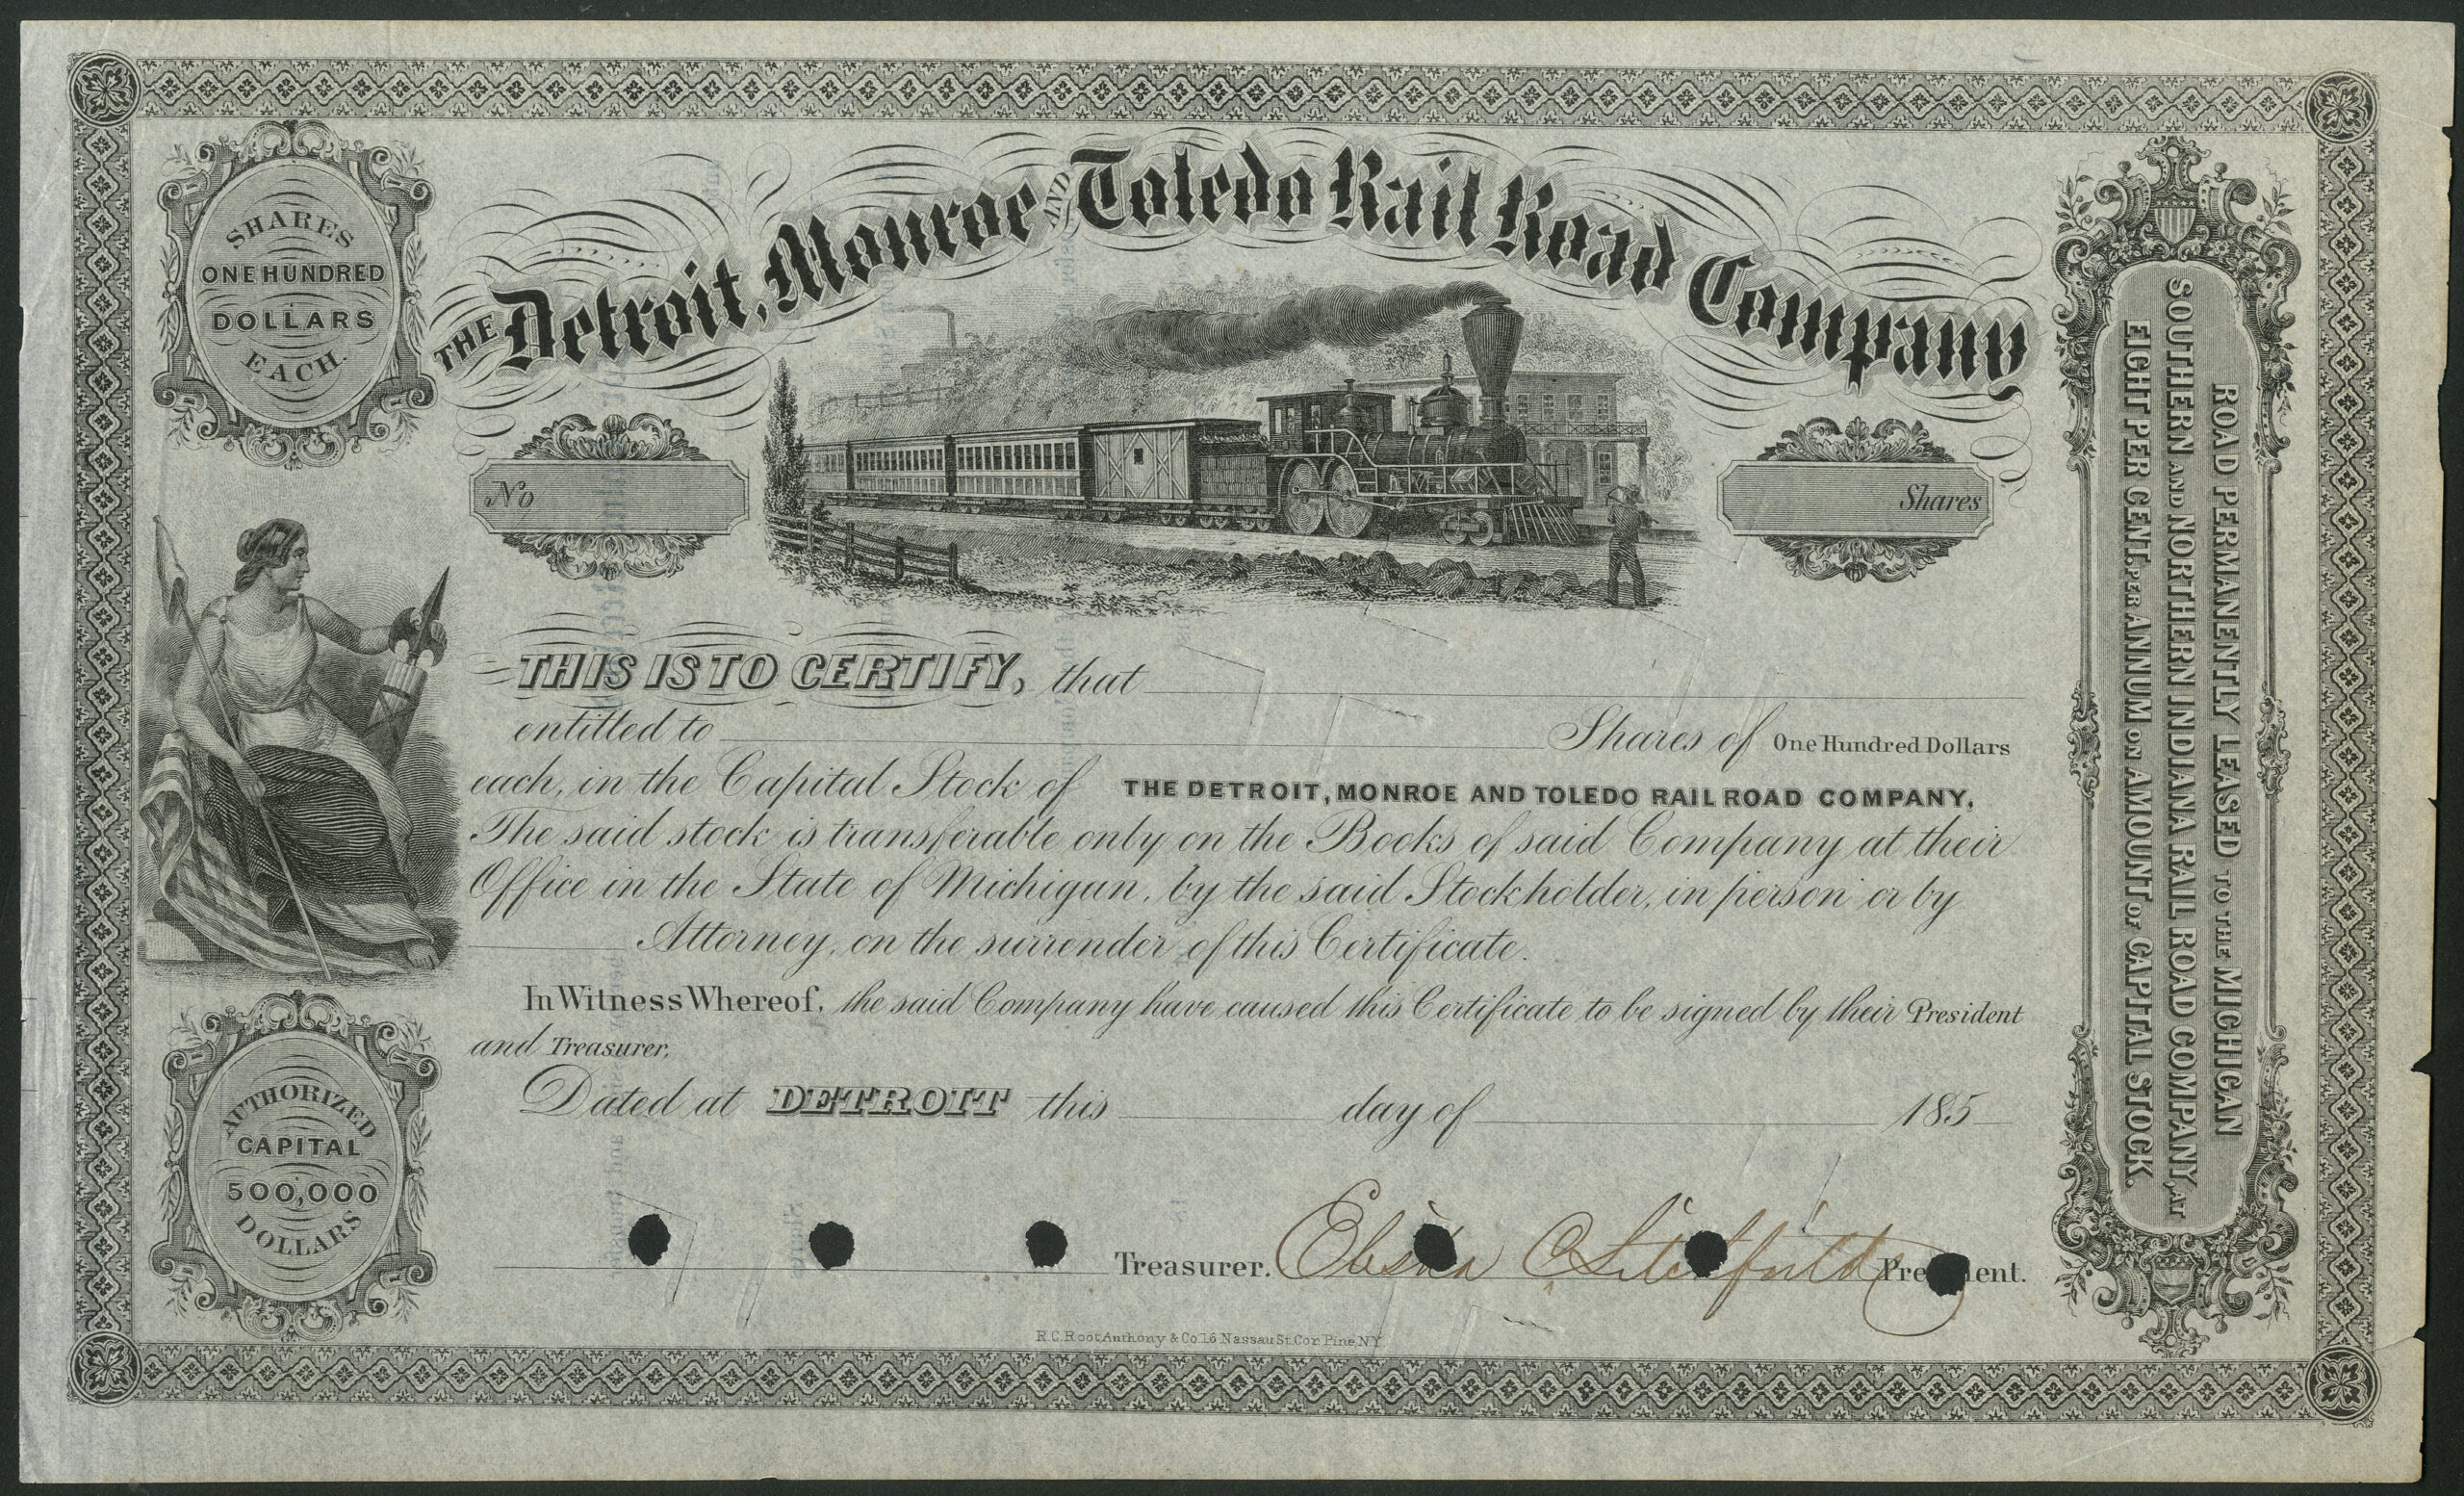 THE Detroit, Monroe AND Toledo Rail Road Company
SHARES
ONE HUNDRED
DOLLARS
EACH.
No
Shares
THIS IS TO CERTIFY, that
entitled to Shares of One Hundred Dollars
each, in the Capital Stock of THE DETROIT, MONROE AND TOLEDO RAIL ROAD COMPANY.
The said stock is transferable only on the Books of said Company at their
Office in the State of Michigan, by the said Stockholder, in person or by
Attorney, on the surrender of this Certificate.
In Witness Whereof, the said Company have caused this Certificate to be signed by their President
and Treasurer,
Dated at DETROIT this day of 185
AUTHORIZED
CAPITAL
500,000
DOLLARS
Treasurer. Elisha C Litchfield President.
R.C. Root, Anthony & Co. 16 Nassau St. Cor. Pine, N.Y.
ROAD PERMANENTLY LEASED TO THE MICHIGAN
SOUTHERN AND NORTHERN INDIANA RAIL ROAD COMPANY, AT
EIGHT PER CENT. PER ANNUM ON AMOUNT OF CAPITAL STOCK.